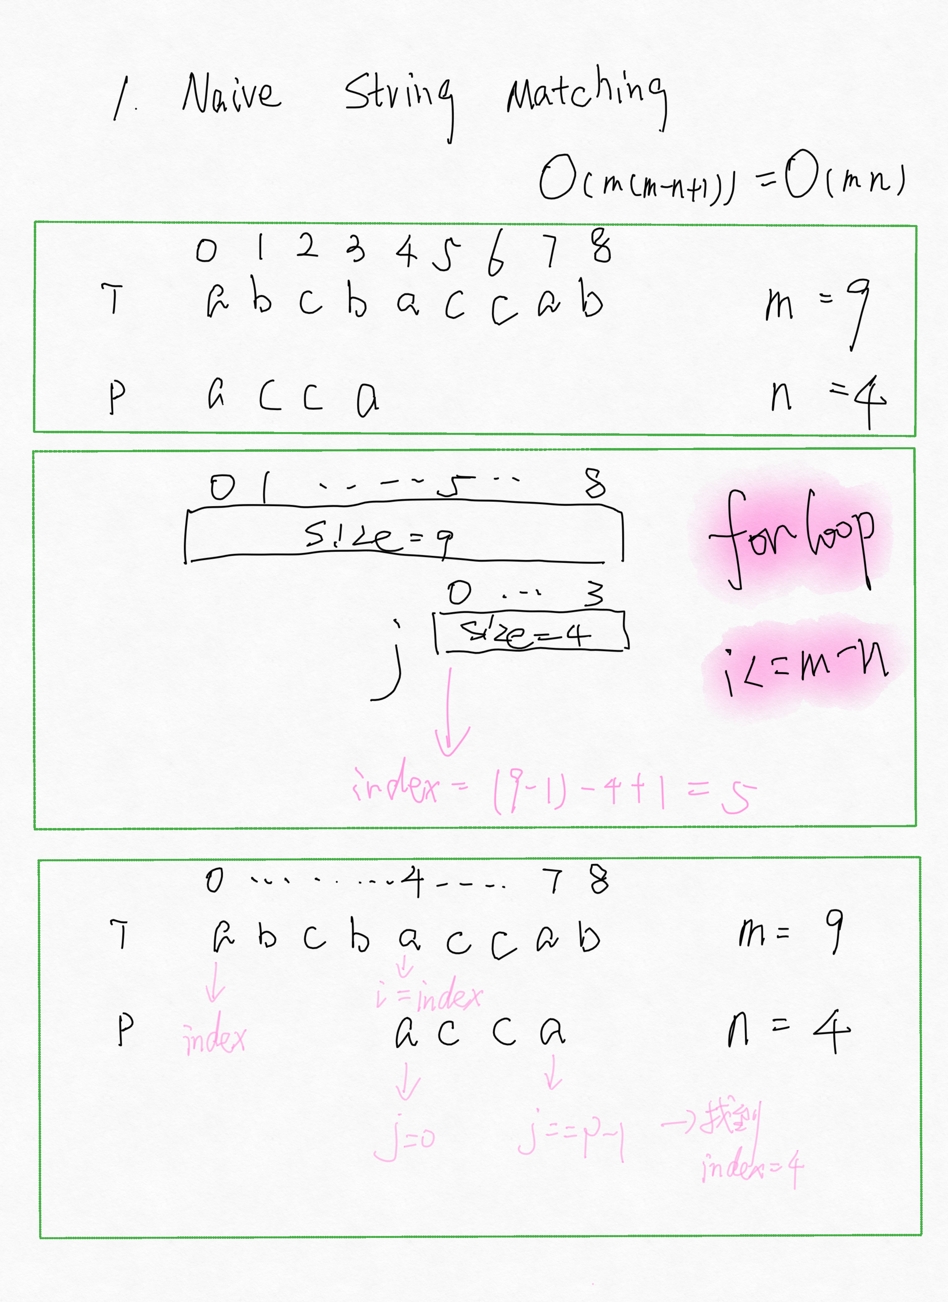 1. Naive String Matching
O(m(m-n+1)) = O(mn)
0 1 2 3 4 5 6 7 8
T a b c b a c c a b m = 9
P a c c a n = 4
0 1 ..---5... 8
size=9
for loop
0 ... 3
j size=4
i<=m-n
index = (9-1)-4+1 = 5
0 .......4----.. 7 8
T a b c b a c c a b m = 9
i = index
P index a c c a n = 4
j=0 j==p-1 →找到
index=4